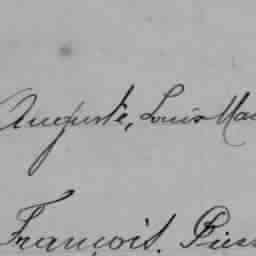 Auguste, Louis Mar
François. Pier